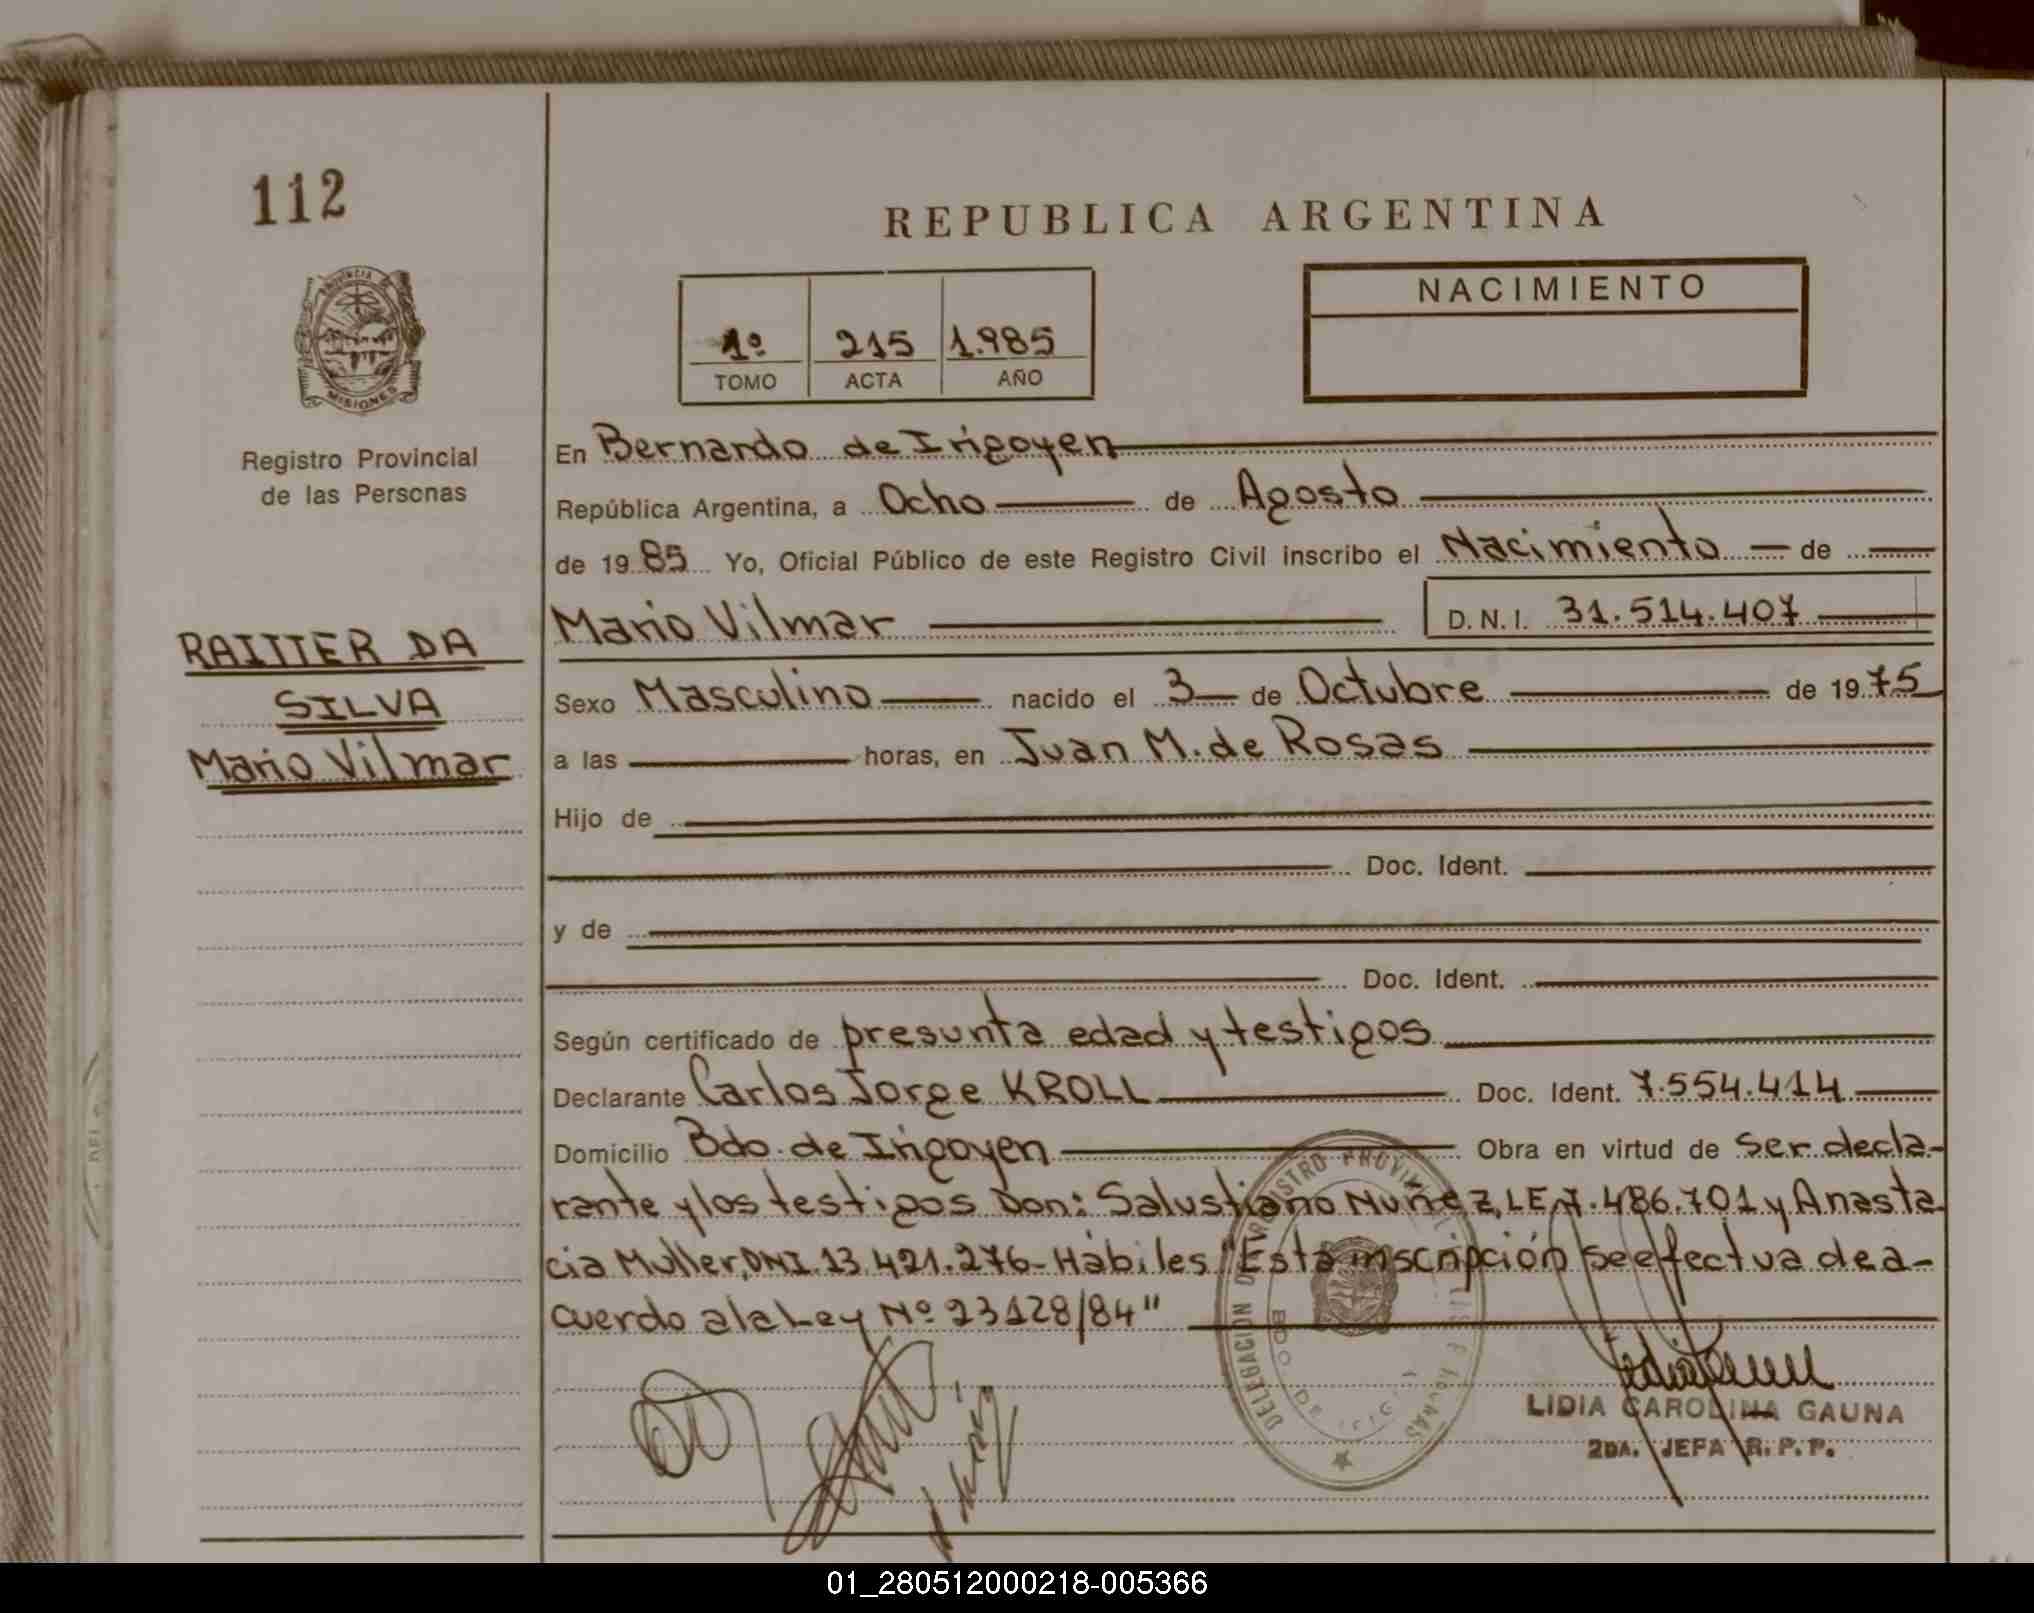 112
REPUBLICA ARGENTINA
PROVINCIA DE
MISIONES
Registro Provincial
de las Personas
1º 215 1.985
TOMO ACTA AÑO
NACIMIENTO
En Bernardo de Irigoyen
República Argentina, a Ocho de Agosto
de 1985 Yo, Oficial Público de este Registro Civil inscribo el Nacimiento de
RAITTER DA
SILVA
Mario Vilmar
Mario Vilmar D.N.I. 31.514.407
Sexo Masculino nacido el 3 de Octubre de 1975
a las horas, en Juan M. de Rosas
Hijo de
Doc. Ident.
y de
Doc. Ident.
Según certificado de presunta edad y testigos
Declarante Carlos Jorge KROLL Doc. Ident. 7.554.414
Domicilio Bdo. de Irigoyen Obra en virtud de ser decla-
rante y los testigos Don: Salustiano Nuñez, LE 7.486.701 y Anasta-
cia Muller, DNI. 13.421.276- Hábiles "Esta inscripción se efectua de a-
cuerdo a la Ley Nº 23128/84"
LIDIA CAROLINA GAUNA
2DA. JEFA R.P.P.
01_280512000218-005366